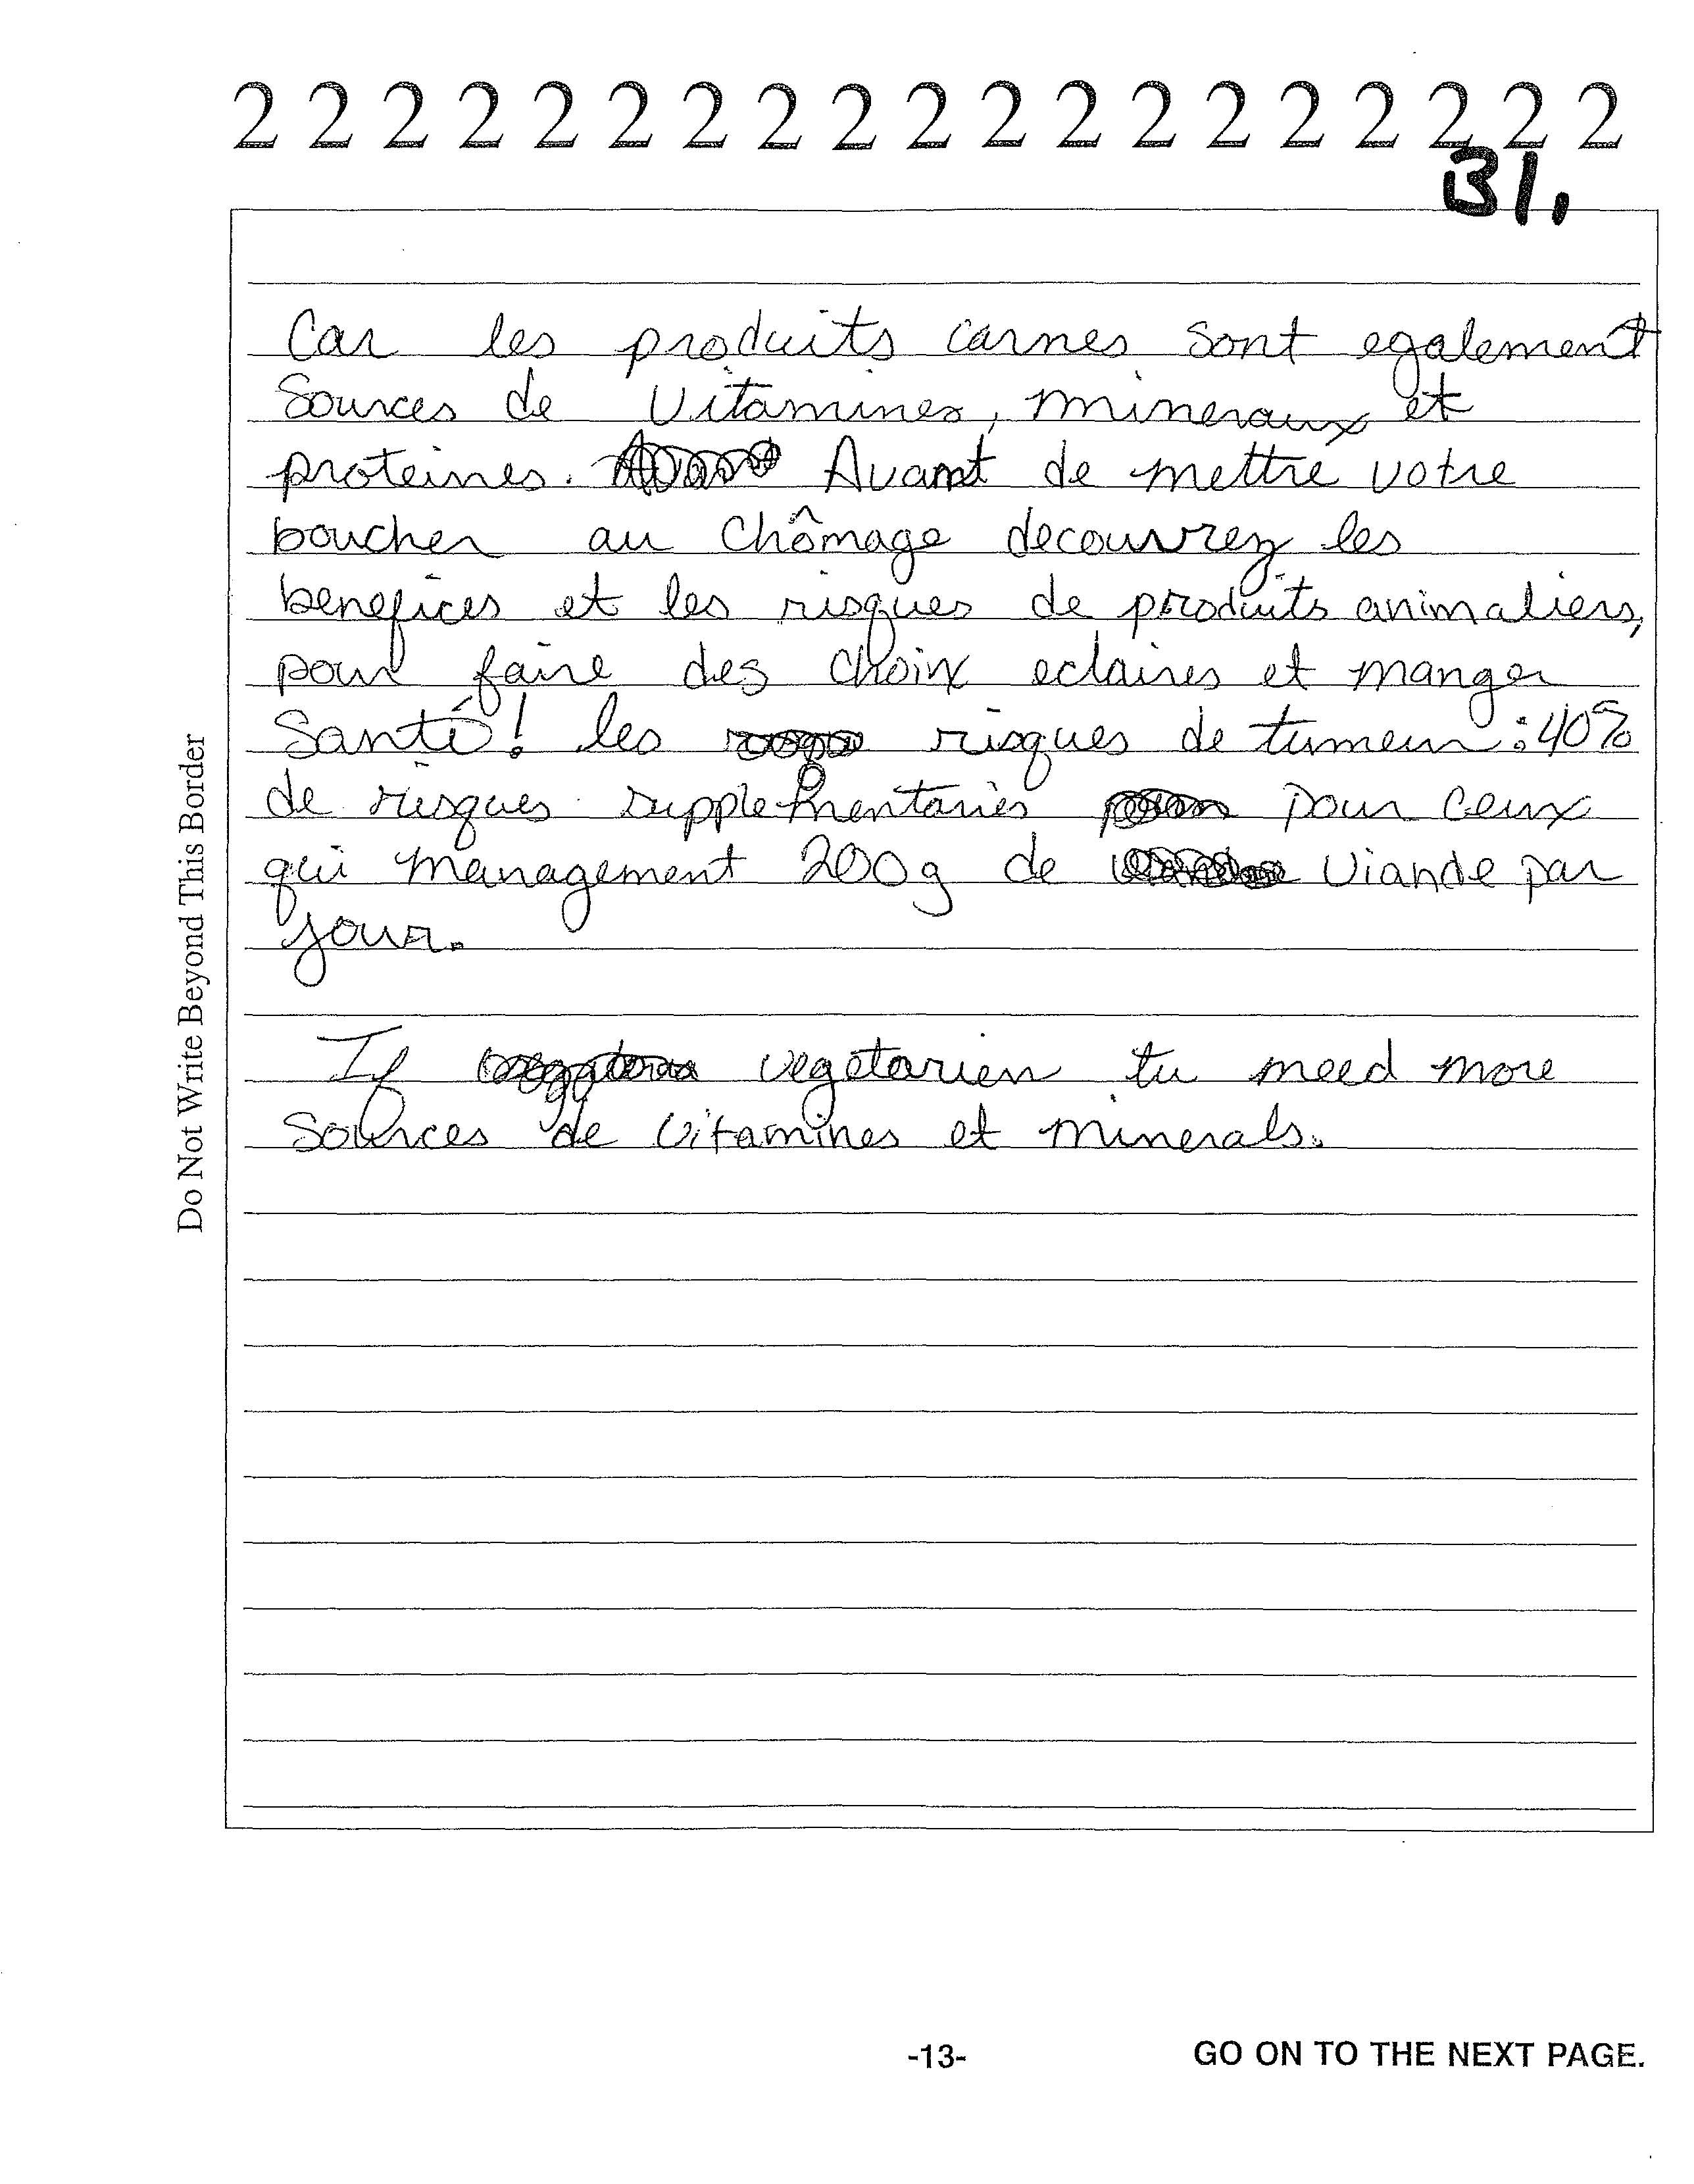 2 2 2 2 2 2 2 2 2 2 2 2 2 2 2 2 2 2 2
31.
Car les produits carnes sont egalement
Sources de Vitamines, mineraux et
proteines. Avant de mettre votre
boucher au chômage decouvrez les
benefices et les risques de produits animaliers,
pour faire des choix eclaires et manger
Santé! les risques de tumeur: 40%
de risques supplementaries pour ceux
qui management 200g de Viande par
jour.
If vegetarien tu need more
Sources de vitamines et minerals.
Do Not Write Beyond This Border
-13-
GO ON TO THE NEXT PAGE.